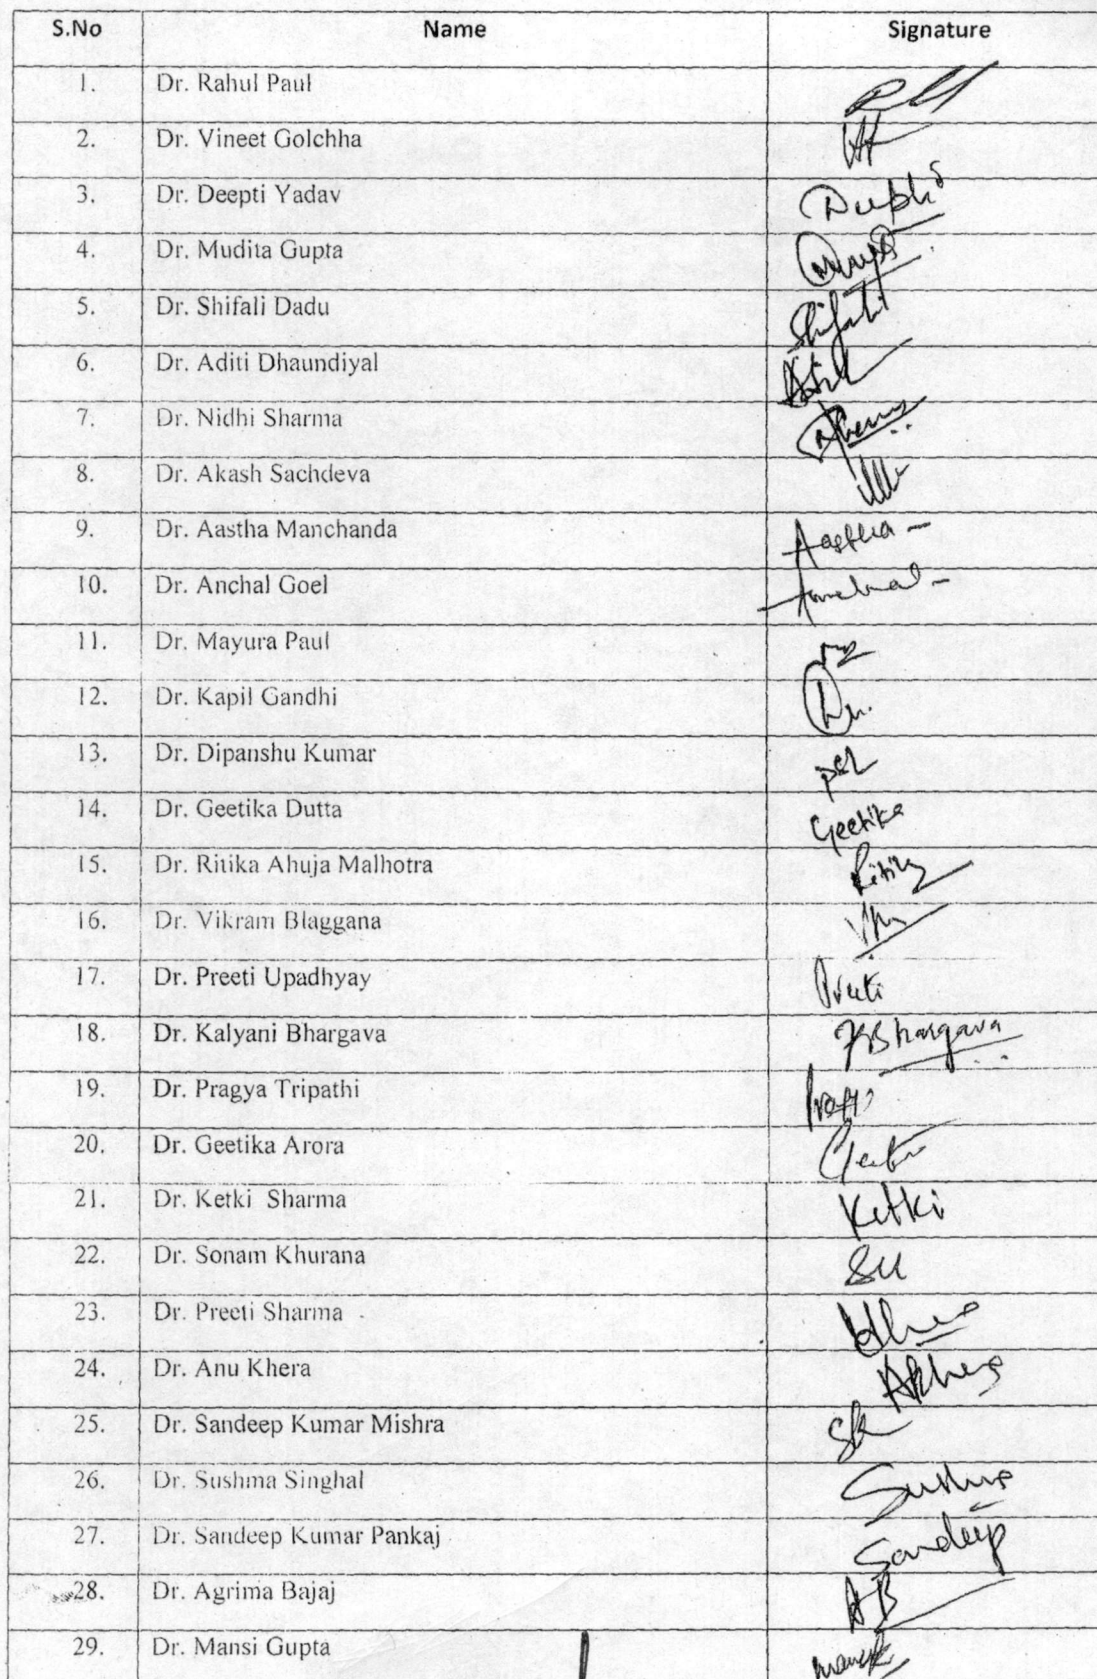 S.No Name Signature
1. Dr. Rahul Paul
2. Dr. Vineet Golchha
3. Dr. Deepti Yadav Deepti
4. Dr. Mudita Gupta
5. Dr. Shifali Dadu Shifali
6. Dr. Aditi Dhaundiyal
7. Dr. Nidhi Sharma
8. Dr. Akash Sachdeva
9. Dr. Aastha Manchanda Aastha
10. Dr. Anchal Goel Anchal
11. Dr. Mayura Paul
12. Dr. Kapil Gandhi
13. Dr. Dipanshu Kumar
14. Dr. Geetika Dutta Geetika
15. Dr. Ritika Ahuja Malhotra
16. Dr. Vikram Blaggana
17. Dr. Preeti Upadhyay Preeti
18. Dr. Kalyani Bhargava KBhargava
19. Dr. Pragya Tripathi
20. Dr. Geetika Arora
21. Dr. Ketki Sharma Ketki
22. Dr. Sonam Khurana
23. Dr. Preeti Sharma
24. Dr. Anu Khera AKhera
25. Dr. Sandeep Kumar Mishra
26. Dr. Sushma Singhal
27. Dr. Sandeep Kumar Pankaj Sandeep
28. Dr. Agrima Bajaj AB
29. Dr. Mansi Gupta